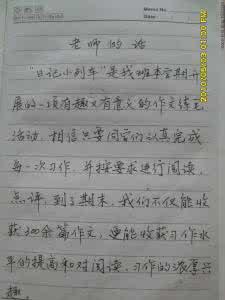 Memo No.
Date
老师的话
“日记小列车”是我班本学期开
展的一项有趣又有意义的作文练笔
活动,相信只要同学们认真完成
每一次习作,并按要求进行阅读、
点评,到了期末,我们不仅能收
获300余篇作文,更能收获习作水
平的提高和对阅读、习作的浓厚兴
趣。